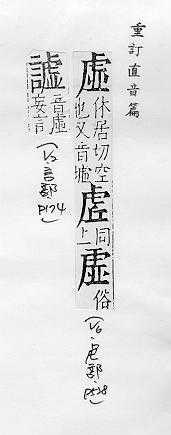 重訂直音篇
虛休居切空也又音墟虗同上虚俗
(1/6·虍部·P528)
譃音虛妄言
(1/2·言部P174)